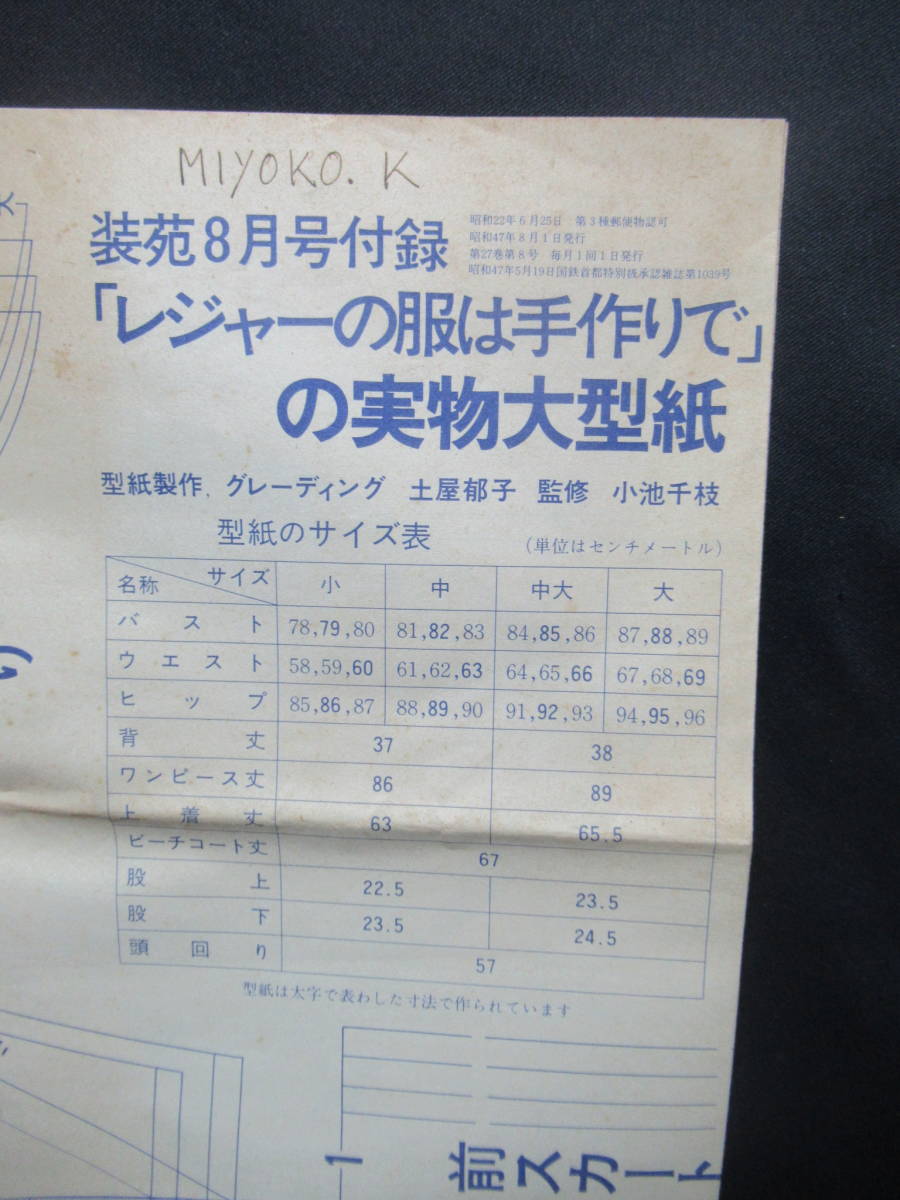 MIYOKO. K
装苑8月号付録
昭和22年6月25日 第3種郵便物認可
昭和47年8月1日発行
第27巻第8号 毎月1回1日発行
昭和47年5月19日国鉄首都特別扱承認雑誌第1039号
「レジャーの服は手作りで」
の実物大型紙
型紙製作、グレーディング 土屋郁子 監修 小池千枝
型紙のサイズ表 (単位はセンチメートル)
名称 サイズ 小 中 中大 大
バスト 78,79,80 81,82,83 84,85,86 87,88,89
ウエスト 58,59,60 61,62,63 64,65,66 67,68,69
ヒップ 85,86,87 88,89,90 91,92,93 94,95,96
背丈 37 38
ワンピース丈 86 89
上着丈 63 65.5
ビーチコート丈 67
股上 22.5 23.5
股下 23.5 24.5
頭回り 57
型紙は太字で表わした寸法で作られています
1
前スカート